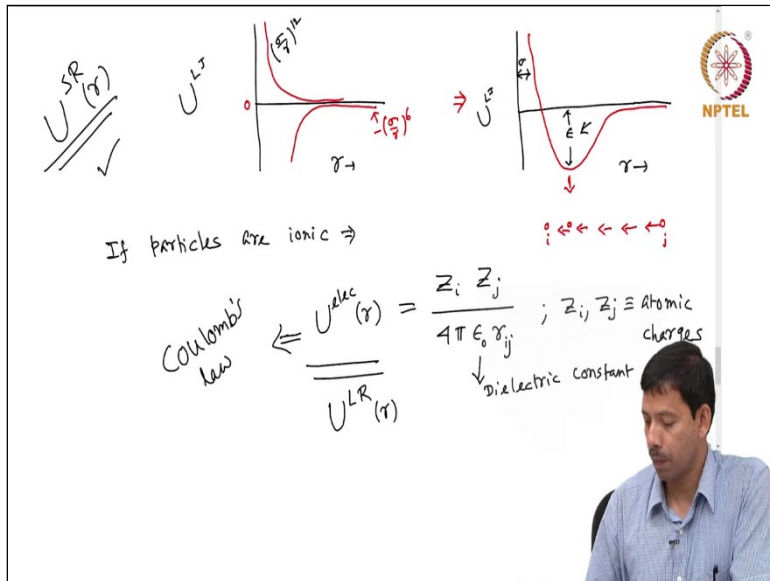 U^SR(r)
U^LJ
0
(σ/r)^12
-(σ/r)^6
r→
⇒
U^LJ
σ
ϵ
r→
NPTEL
i
j
If particles are ionic ⇒
Coulomb's law ⇐ U^elec(r) = Z_i Z_j / 4π ϵ_0 r_ij ; Z_i, Z_j ≡ atomic charges
Dielectric constant
U^LR(r)